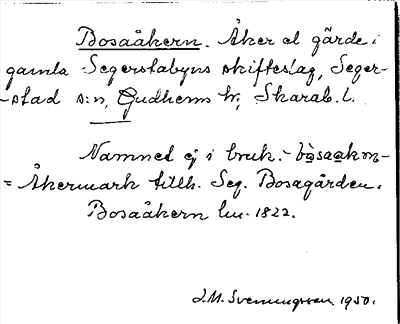 Bosaåkern. Åker el gärde i
gamla Segerstabyns skifteslag, Seger-
-stad s:n, Gudhems hr, Skarab. l.
Namnet ej i bruk. -
= Åkermark tillh. Seg. Bosagården.
Bosaåkern lm. 1822.
J. M. Svenungsson. 1950.